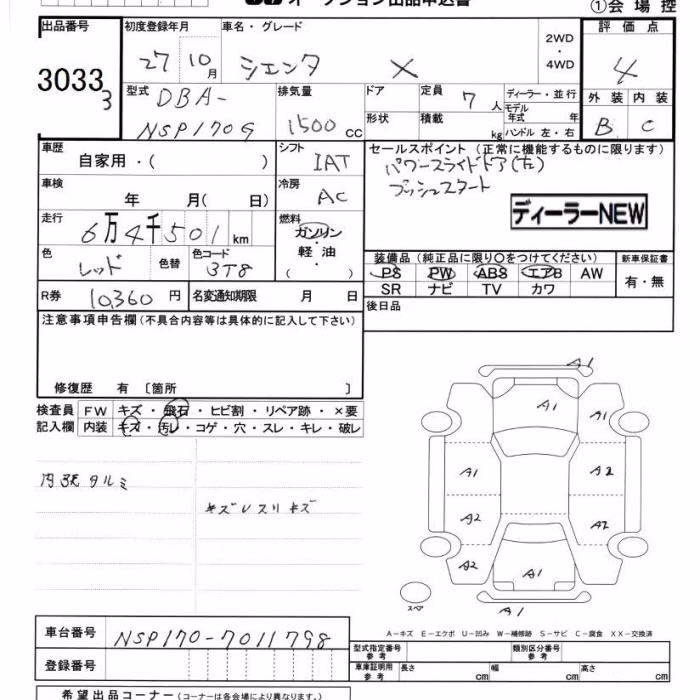 オークション出品申込書
①会場控
出品番号
30333
初度登録年月
27 10月
車名・グレード
シエンタ X
2WD・4WD
評価点
4
外装 内装
B C
型式
DBA-
NSP170G
排気量
1500cc
ドア
形状
定員 7人
積載 kg
ディーラー・並行
モデル年式 年
ハンドル 左・右
車歴
自家用・( )
シフト
IAT
車検
年 月( 日)
冷房
AC
走行
6万4千501km
燃料
ガソリン
軽・油
( )
色
レッド
色替
色コード
3T8
R券 10360円
名変通知期限 月 日
セールスポイント(正常に機能するものに限ります)
パワースライドドア(左)
プッシュスタート
ディーラーNEW
装備品(純正品に限り○をつけてください)
PS PW ABS エアB AW
SR ナビ TV カワ
新車保証書
有・無
後日品
注意事項申告欄(不具合内容等は具体的に記入して下さい)
修復歴 有 〔箇所 〕
検査員記入欄
FW キズ・飛石・ヒビ割・リペア跡・×要
内装 キズ・汚レ・コゲ・穴・スレ・キレ・破レ
内張タルミ
キズUスリキズ
A1
A1 A1
A1 A2
A2 A2
A2 A1
A1
スペア
A-キズ E-エクボ U-凹み W-補修跡 S-サビ C-腐食 XX-交換済
車台番号
NSP170-7011798
登録番号
型式指定番号参考
類別区分番号参考
車庫証明用参考
長さ cm 幅 cm 高さ cm
希望出品コーナー(コーナーは各会場により異なります。)